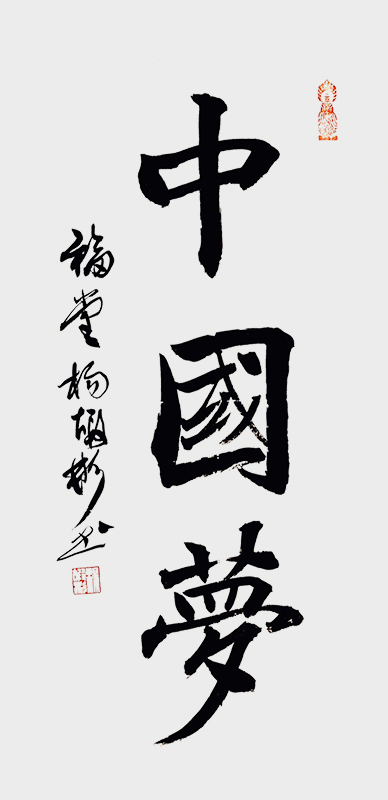 中國夢
福堂楊墩彬書